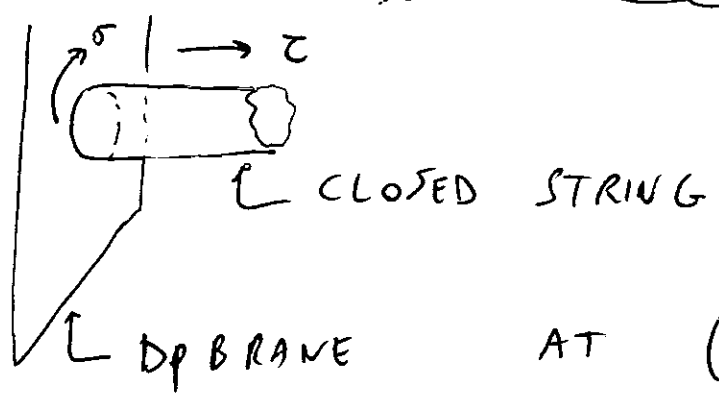 σ → τ
CLOSED STRING
Dp BRANE AT (